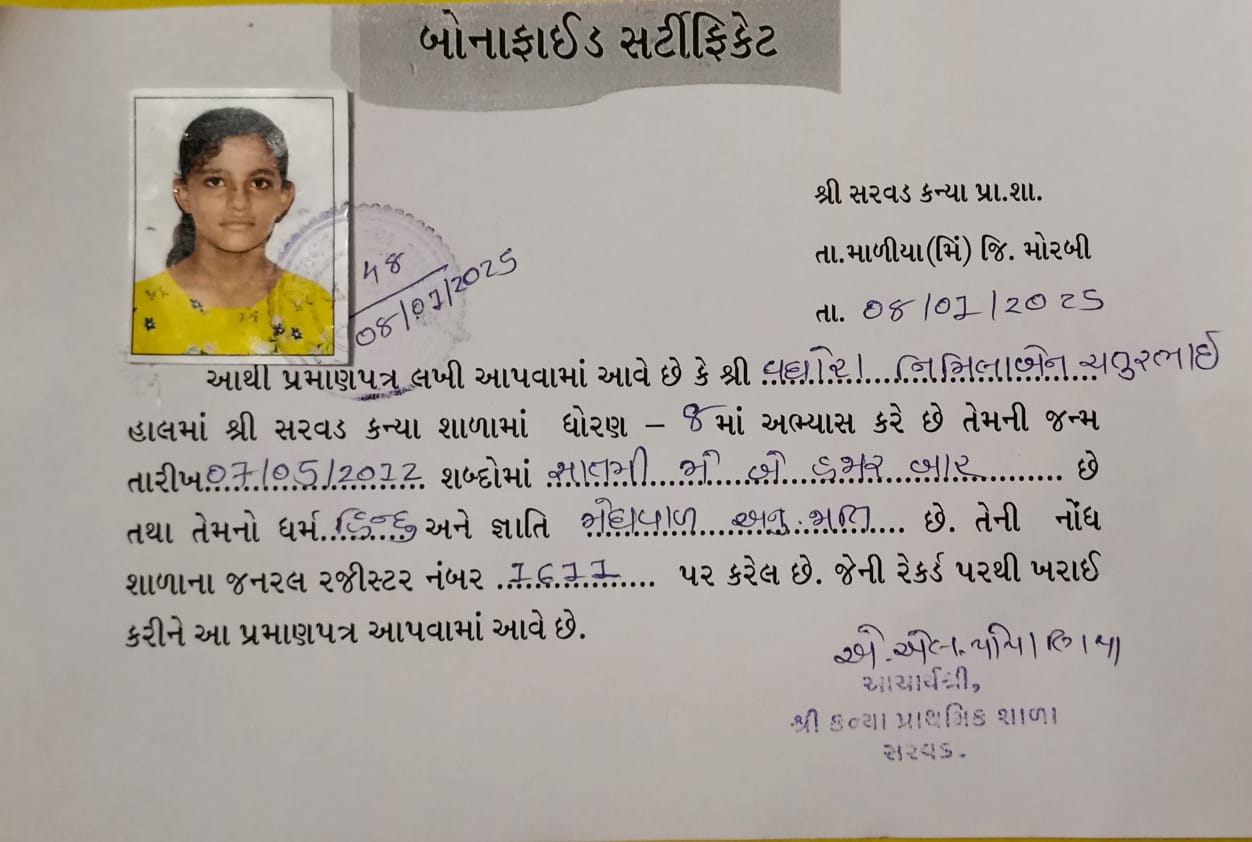 બોનાફાઈડ સર્ટીફિકેટ
શ્રી સરવડ કન્યા પ્રા.શા.
તા.માળીયા(મિં) જિ. મોરબી
તા. 08/07/2025
48
08/07/2025
આથી પ્રમાણપત્ર લખી આપવામાં આવે છે કે શ્રી વઘોરા નિમિલાબેન ચતુરભાઈ
હાલમાં શ્રી સરવડ કન્યા શાળામાં ધોરણ – 8 માં અભ્યાસ કરે છે તેમની જન્મ
તારીખ 07/05/2012 શબ્દોમાં સાતમી મે બે હજાર બાર છે
તથા તેમનો ધર્મ હિન્દુ અને જ્ઞાતિ મેઘવાળ અનુ. જાતિ છે. તેની નોંધ
શાળાના જનરલ રજીસ્ટર નંબર 7677 પર કરેલ છે. જેની રેકર્ડ પરથી ખરાઈ
કરીને આ પ્રમાણપત્ર આપવામાં આવે છે.
આચાર્યશ્રી,
શ્રી કન્યા પ્રાથમિક શાળા
સરવડ.